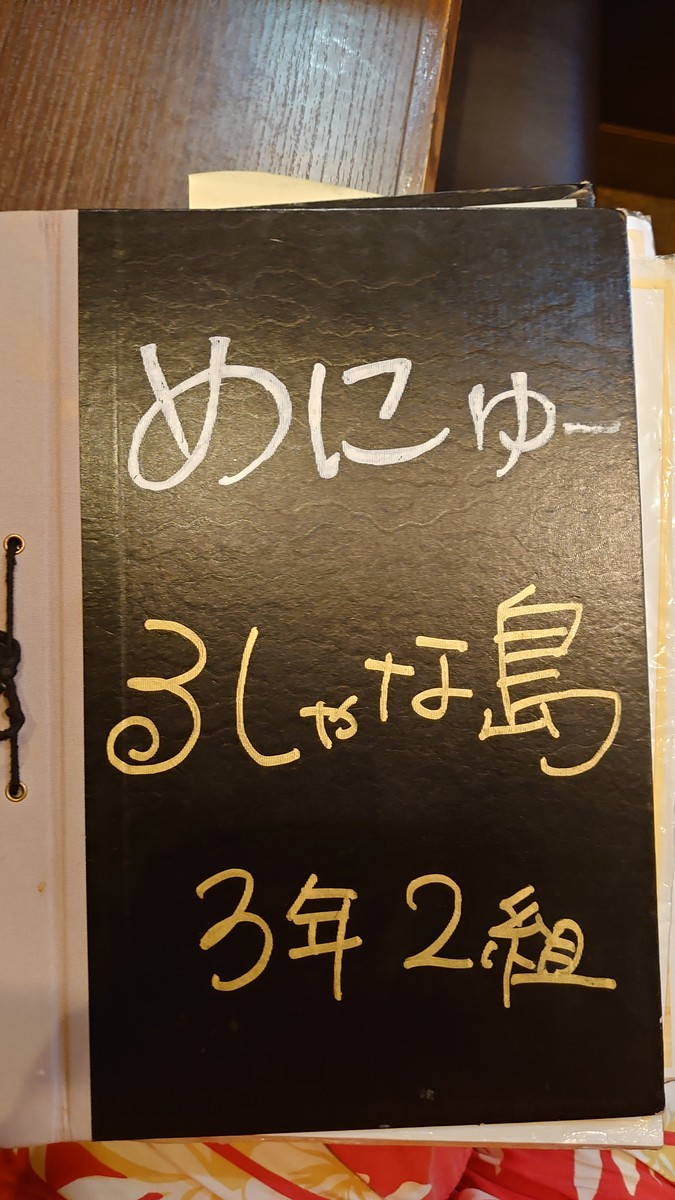 めにゅー
るしゃな島
3年2組